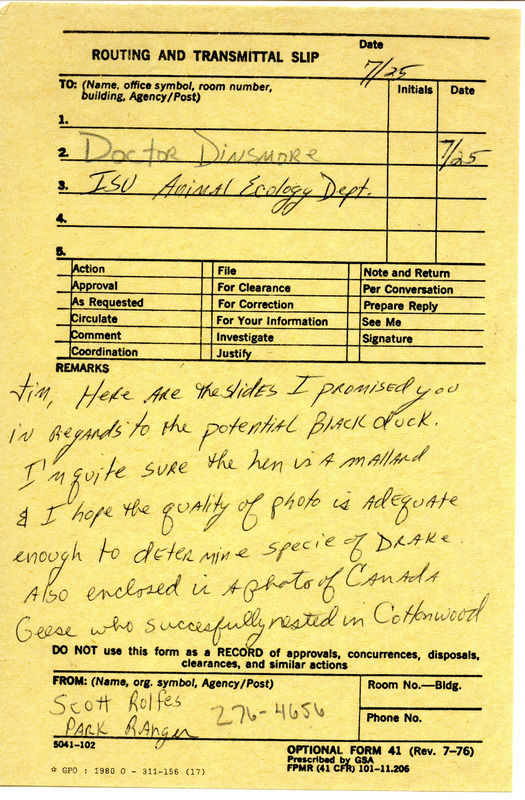 ROUTING AND TRANSMITTAL SLIP
Date
7/25
TO: (Name, office symbol, room number,
building, Agency/Post)
Initials
Date
1.
2. Doctor Dinsmore 7/25
3. ISU Animal Ecology Dept.
4.
5.
Action File Note and Return
Approval For Clearance Per Conversation
As Requested For Correction Prepare Reply
Circulate For Your Information See Me
Comment Investigate Signature
Coordination Justify
REMARKS
Jim, Here are the slides I promised you
in regards to the potential Black duck.
I'm quite sure the hen is a mallard
& I hope the quality of photo is adequate
enough to determine specie of drake.
Also enclosed is a photo of Canada
Geese who succesfully nested in Cottonwood
DO NOT use this form as a RECORD of approvals, concurrences, disposals,
clearances, and similar actions
FROM: (Name, org. symbol, Agency/Post)
Room No.—Bldg.
Scott Rolfes
276-4656
Park Ranger
Phone No.
5041-102
OPTIONAL FORM 41 (Rev. 7-76)
Prescribed by GSA
FPMR (41 CFR) 101-11.206
☆ GPO : 1980 O - 311-156 (17)